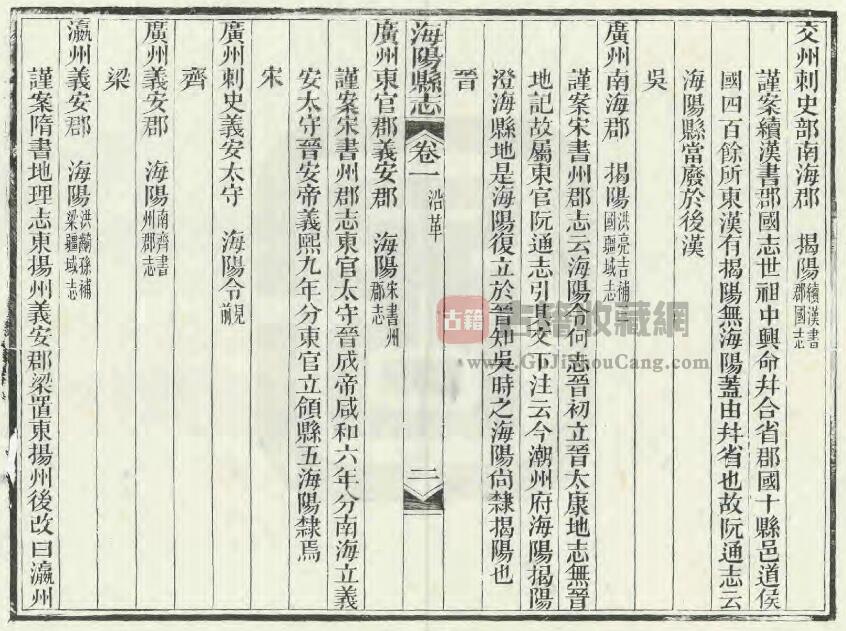 交州刺史部南海郡　揭陽續漢書郡國志
謹案續漢書郡國志世祖中興命并合省郡國十縣邑道侯
國四百餘所東漢有揭陽無海陽蓋由并省也故阮通志云
海陽縣當廢於後漢
吳
廣州南海郡　揭陽洪亮吉補國疆域志
謹案宋書州郡志云海陽令何志晉初立晉太康地志無晉
地記故屬東官阮通志引其文下注云今潮州府海陽揭陽
澄海縣地是海陽復立於晉知吳時之海陽尚隸揭陽也
晉
海陽縣志　卷一　沿革　二
廣州東官郡義安郡　海陽宋書州郡志
謹案宋書州郡志東官太守晉成帝咸和六年分南海立義
安太守晉安帝義熙九年分東官立領縣五海陽隸焉
宋
廣州刺史義安太守　海陽令見前
齊
廣州義安郡　海陽南齊書州郡志
梁
瀛州義安郡　海陽洪齮孫補梁疆域志
謹案隋書地理志東揚州義安郡梁置東揚州後改曰瀛州
古籍
古籍收藏網
www.GuJiShouCang.com